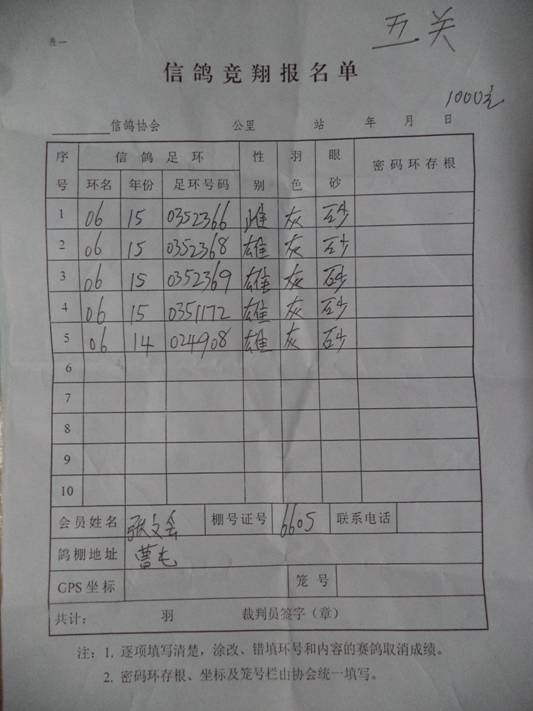 表一
五关
信鸽竞翔报名单
1000元
信鸽协会 公里 站 年 月 日
序号 信鸽足环 性别 羽色 眼砂 密码环存根
环名 年份 足环号码
1 06 15 0352366 雌 灰 砂
2 06 15 0352368 雄 灰 砂
3 06 15 0352369 雄 灰 砂
4 06 15 0351172 雄 灰 砂
5 06 14 024908 雄 灰 砂
6
7
8
9
10
会员姓名 张文会 棚号证号 6605 联系电话
鸽棚地址 曹屯
GPS坐标 笼号
共计: 羽 裁判员签字(章)
注:1. 逐项填写清楚,涂改、错填环号和内容的赛鸽取消成绩。
2. 密码环存根、坐标及笼号栏由协会统一填写。